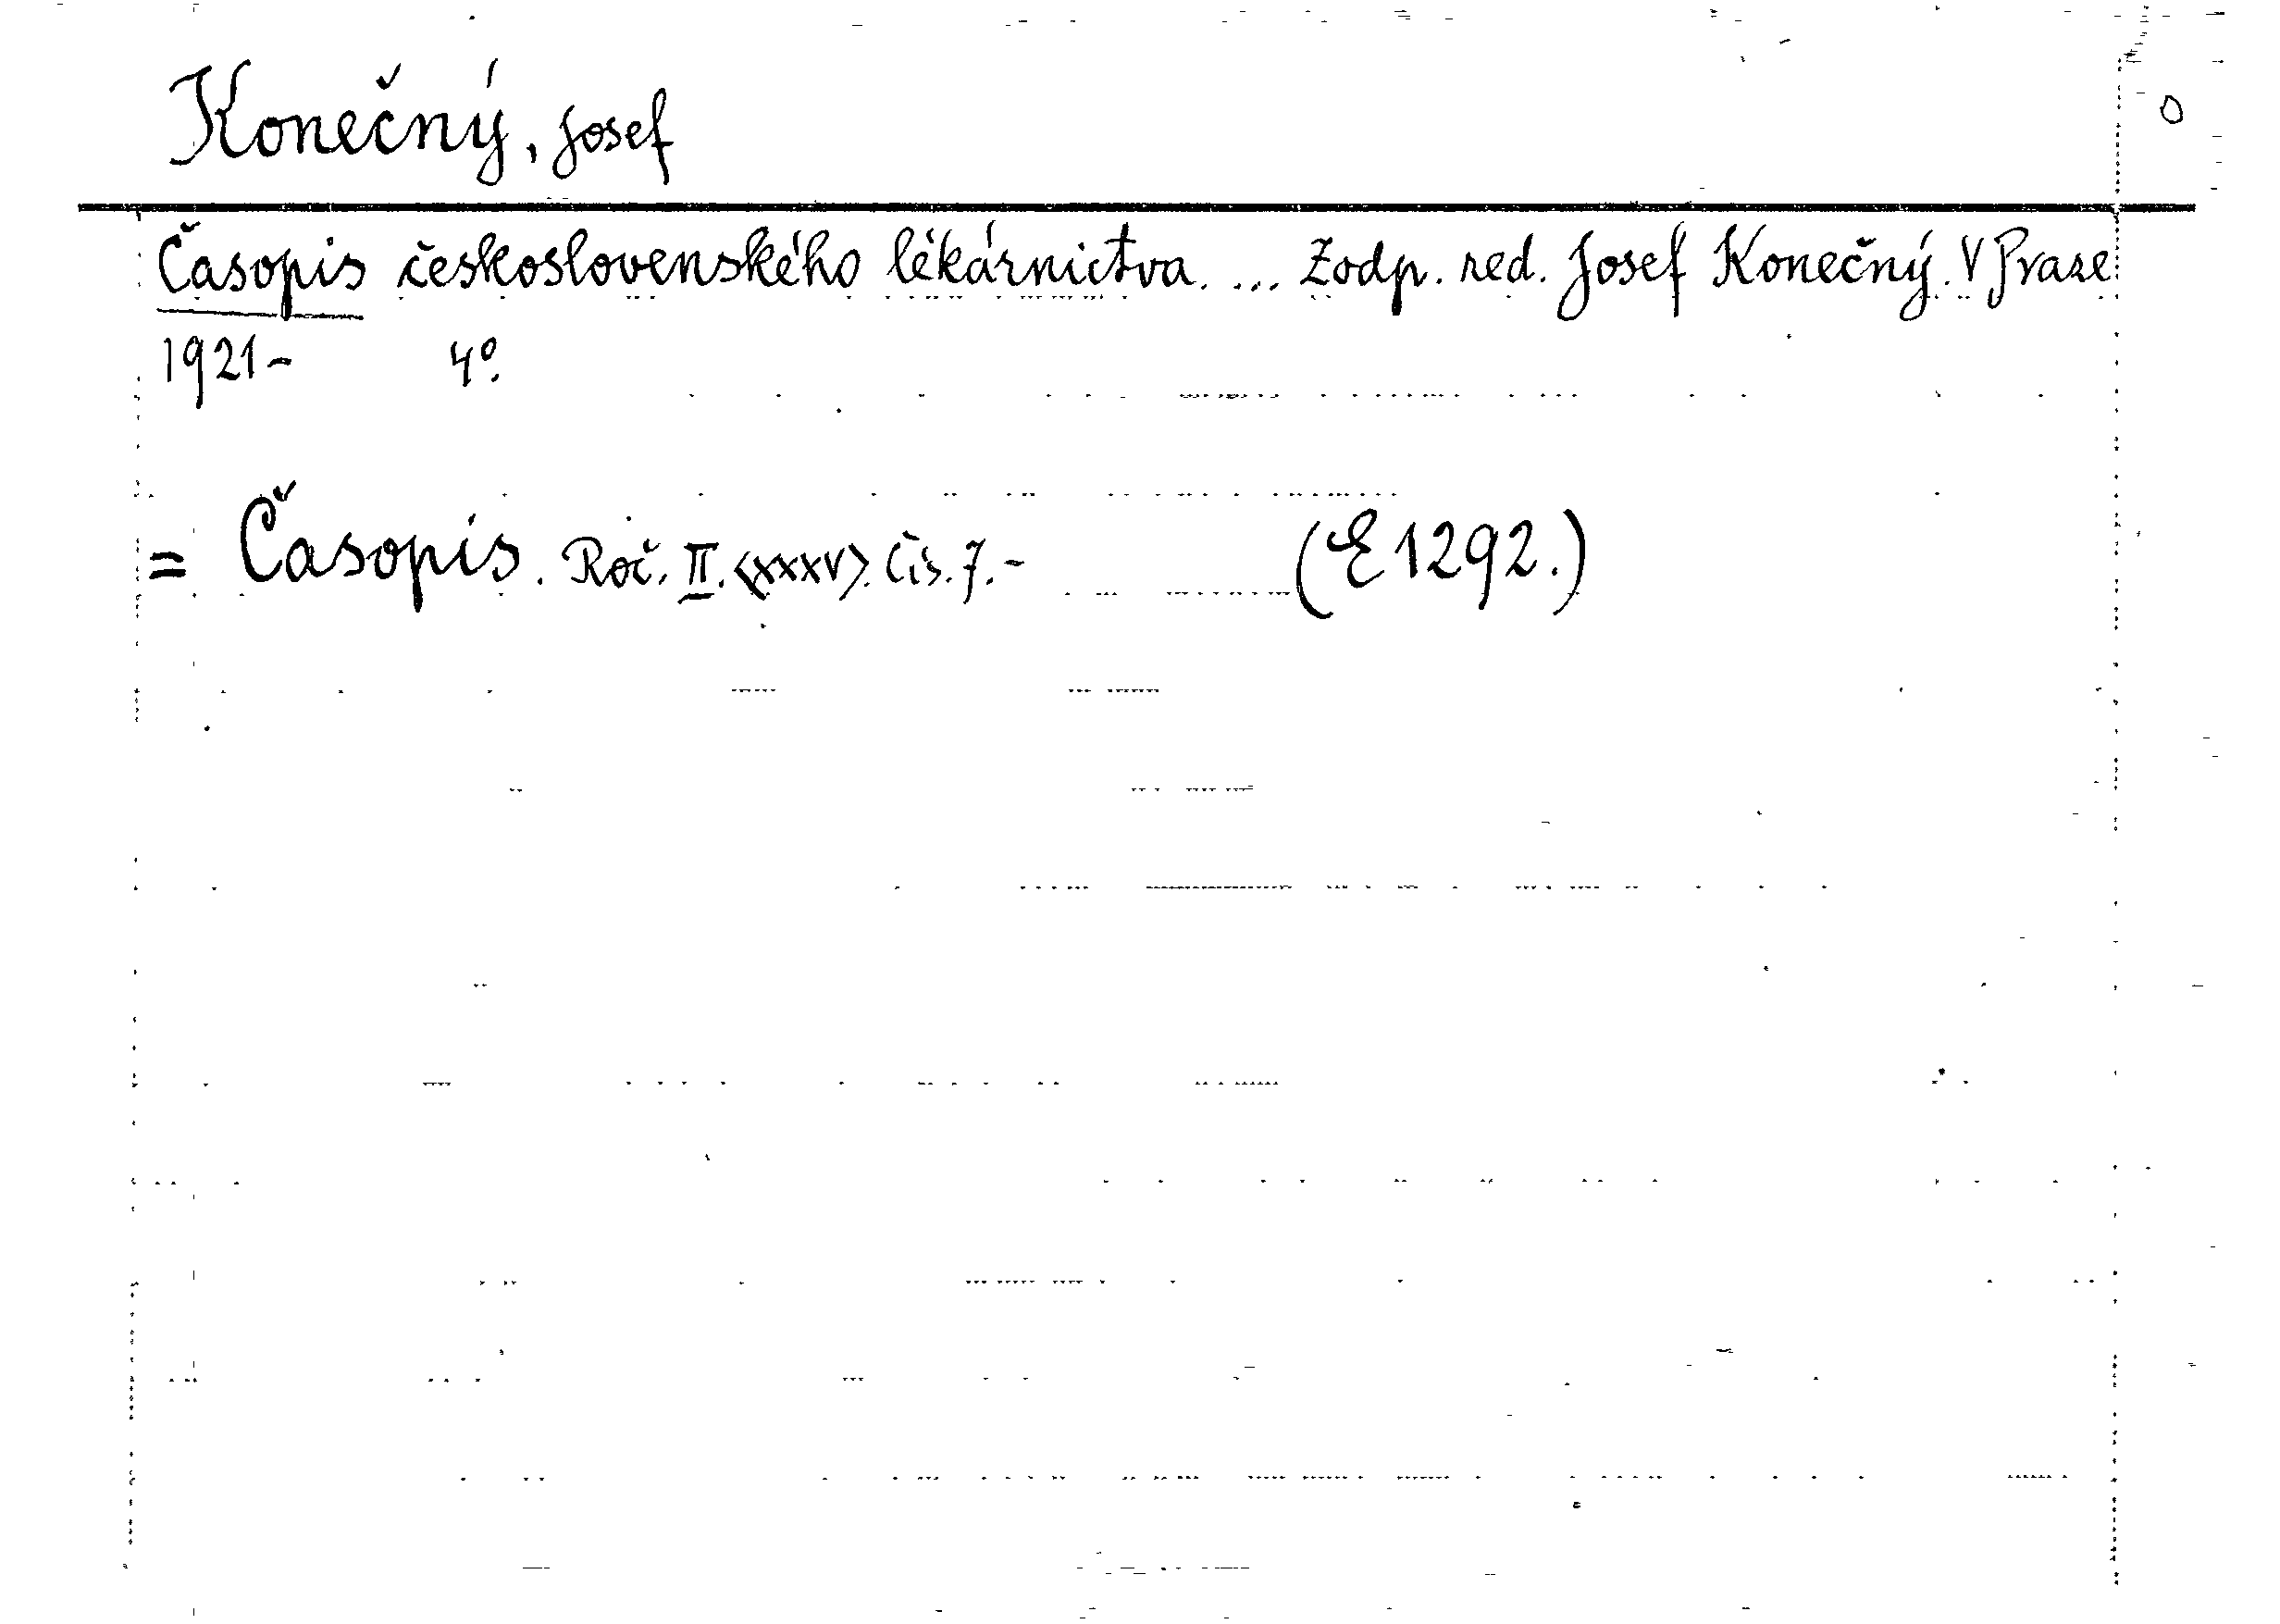 Konečný, Josef
Časopis československého lékárnictva. ... Zodp. red. Josef Konečný. V Praze
1921- 4°.
= Časopis. Roč. II. <XXXV>. Čís. 7.- (E 1292.)